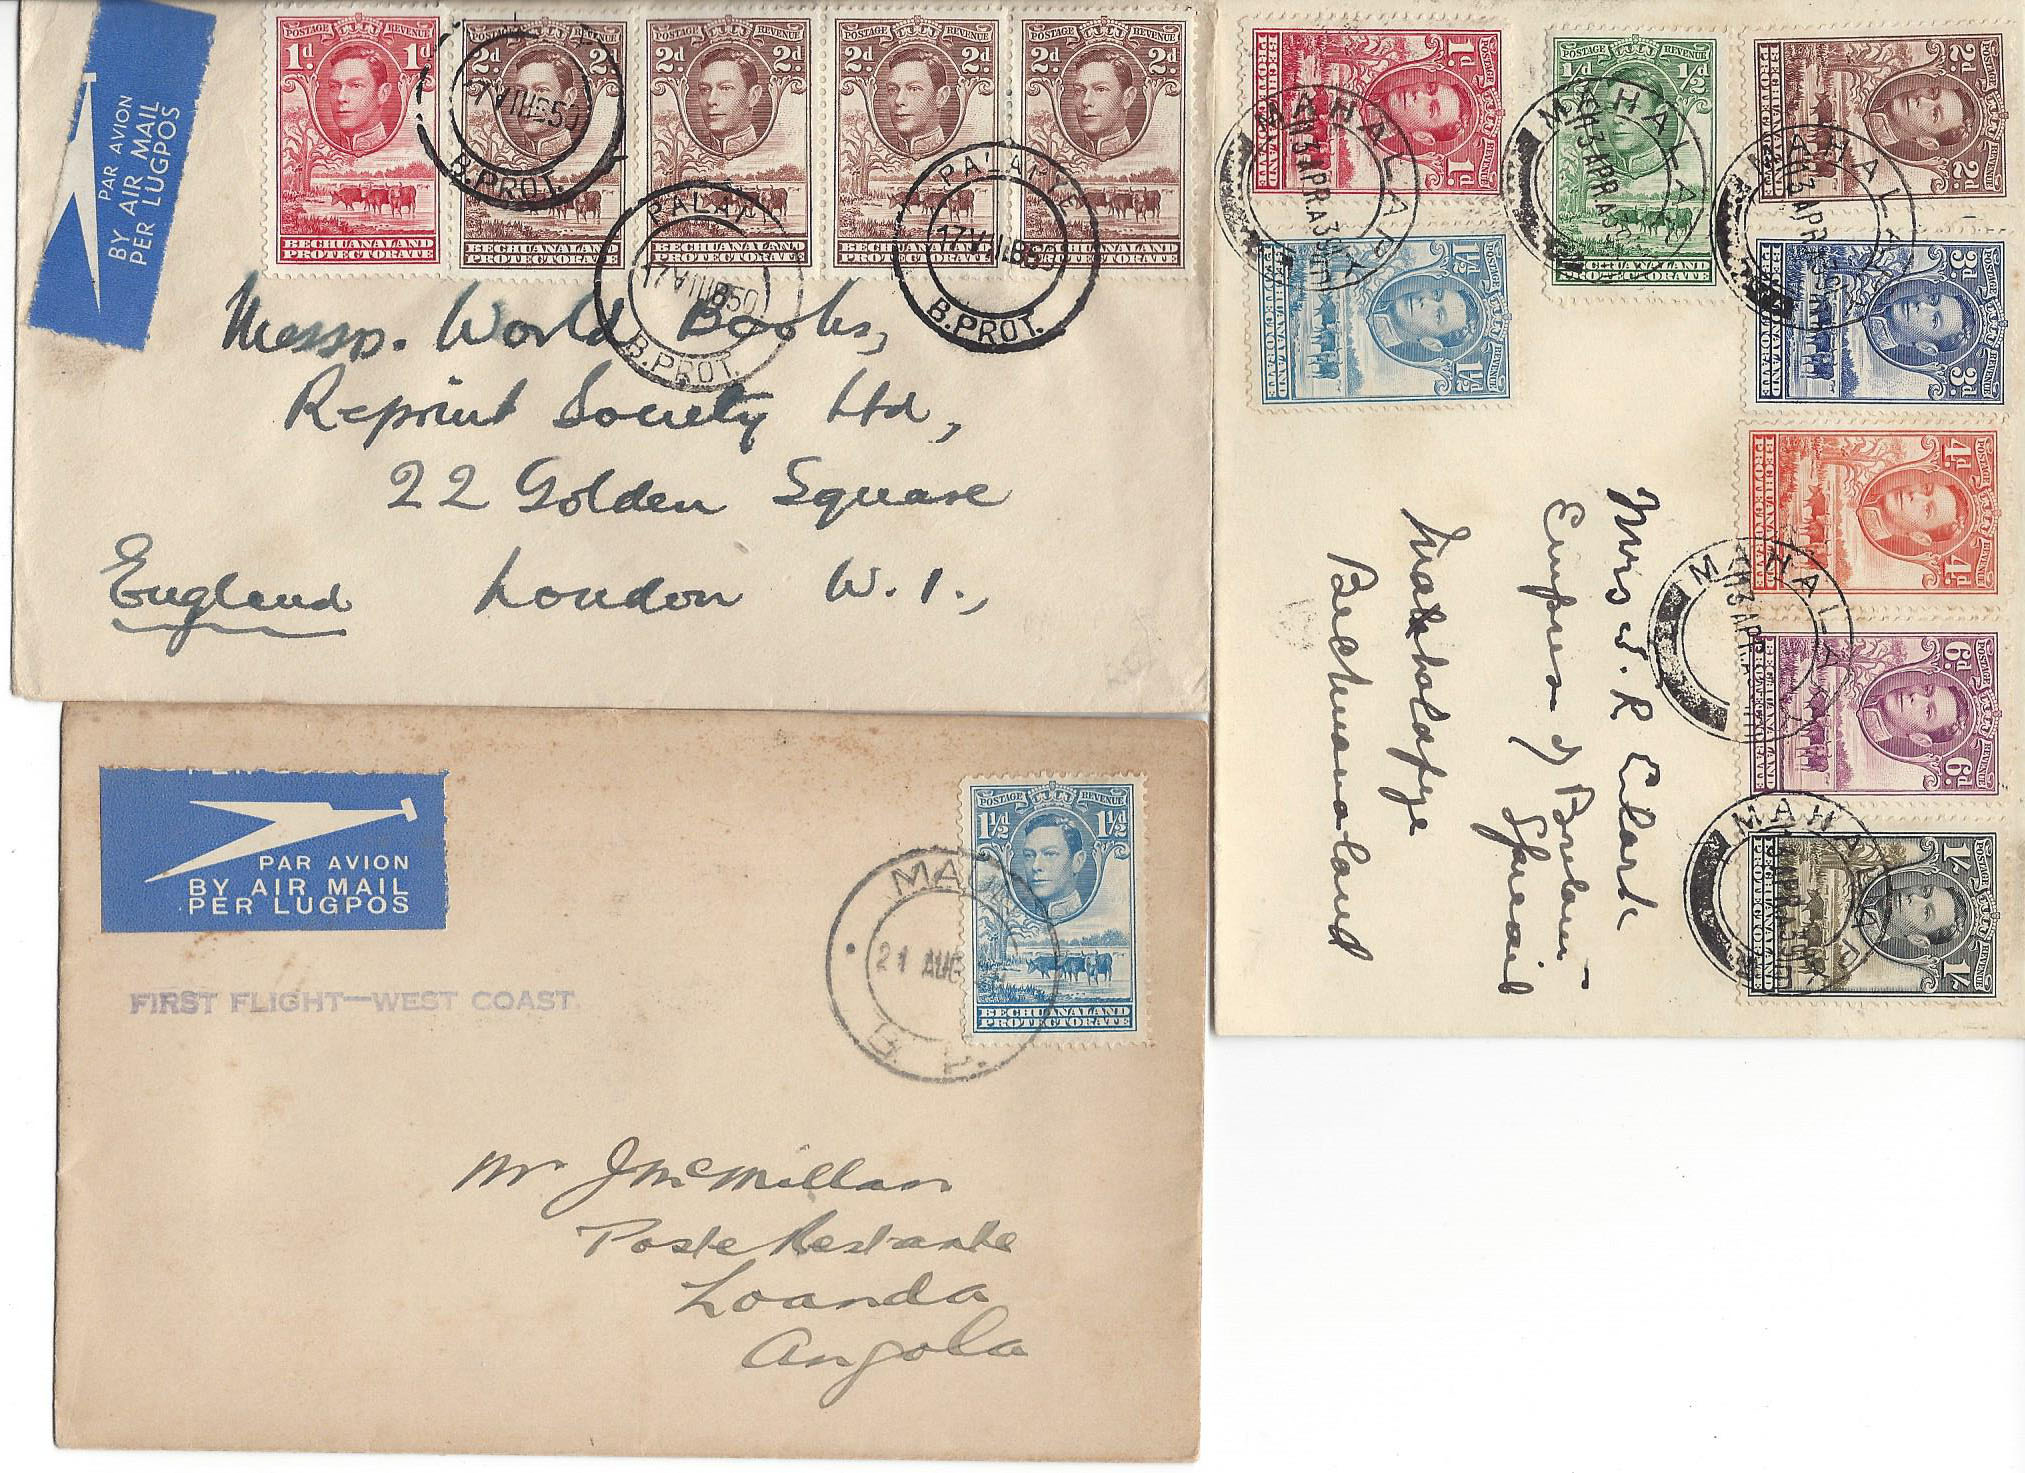 PAR AVION
BY AIR MAIL
PER LUGPOS
POSTAGE REVENUE
1d 1d
BECHUANALAND
PROTECTORATE
POSTAGE REVENUE
2d 2d
BECHUANALAND
PROTECTORATE
POSTAGE REVENUE
2d 2d
BECHUANALAND
PROTECTORATE
POSTAGE REVENUE
2d 2d
BECHUANALAND
PROTECTORATE
POSTAGE REVENUE
2d 2d
BECHUANALAND
PROTECTORATE
17 VIII 50
B.PROT.
PALAP
17 VIII 50
B.PROT.
PALAPYE
B.PROT.
Messrs. World Books,
Reprint Society Ltd,
22 Golden Square
London W.1.,
England
PAR AVION
BY AIR MAIL
PER LUGPOS
FIRST FLIGHT—WEST COAST.
POSTAGE REVENUE
1½d 1½d
BECHUANALAND
PROTECTORATE
MAUN
21 AUG
B.P.
Mr J McMillan
Poste Restante
Loanda
Angola
POSTAGE REVENUE
1d 1d
BECHUANALAND
PROTECTORATE
POSTAGE REVENUE
½d ½d
BECHUANALAND
PROTECTORATE
POSTAGE REVENUE
2d 2d
BECHUANALAND
PROTECTORATE
POSTAGE REVENUE
1½d 1½d
BECHUANALAND
PROTECTORATE
POSTAGE REVENUE
3d 3d
BECHUANALAND
PROTECTORATE
POSTAGE REVENUE
4d 4d
BECHUANALAND
PROTECTORATE
POSTAGE REVENUE
6d 6d
BECHUANALAND
PROTECTORATE
POSTAGE REVENUE
1/- 1/-
BECHUANALAND
PROTECTORATE
MAHALAPY
13 APR
MAHALAP
13 APR
MAHALA
13 APR
MAHALA
13 APR
MAHALAP
Mrs J. R Clark
Empire
Mahalapye
Bechuanaland